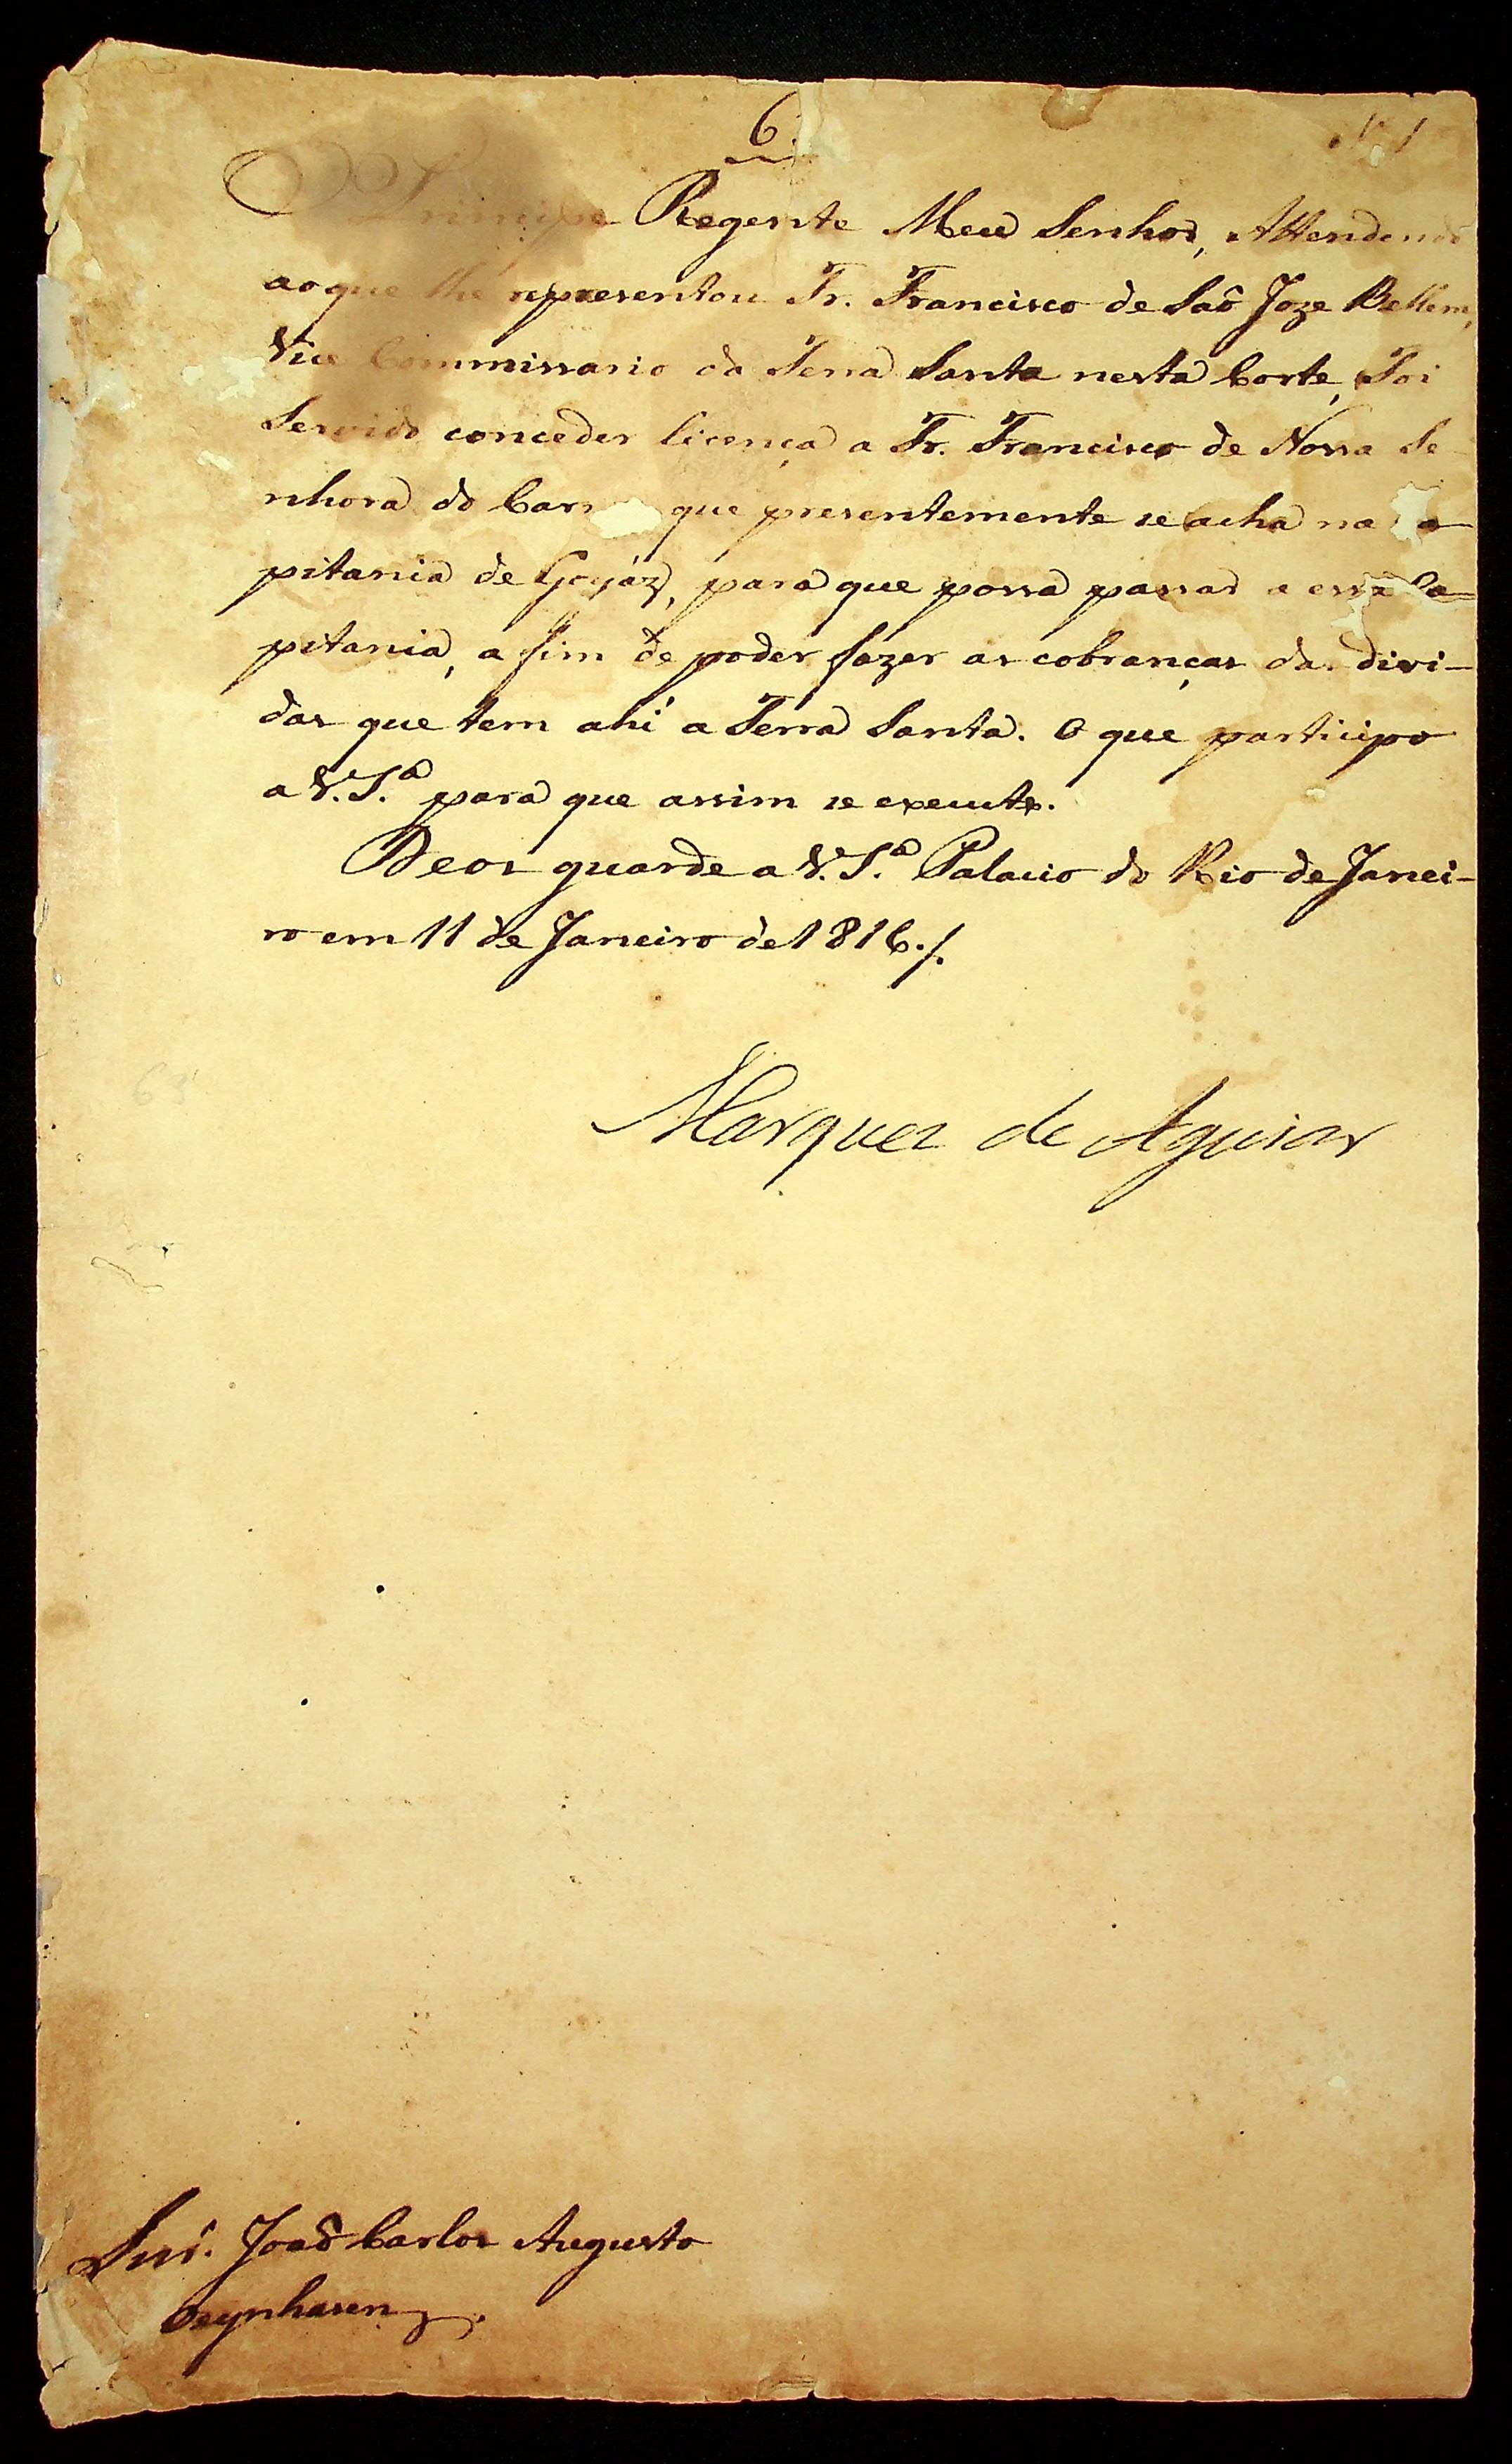 6
O Principe Regente Meu Senhor, Attendendo
ao que lhe representou Fr. Francisco de Saõ Joze Bellem,
Vice Commissario da Terra Santa nesta Corte, Foi
Servido conceder licença a Fr. Francisco de Nossa Se
nhora do Car que presentemente se acha na a
pitania de Goyáz, para que possa passar a essa Ca=
pitania, a fim de poder fazer as cobranças das divi-
das que tem ahi a Terra Santa. O que participo
a V. S.ª para que assim se execute.
Deos guarde a V. S.ª Palacio do Rio de Janei-
ro em 11 de Janeiro de 1816./.
Marquez de Aguiar
Snr. Joaõ Carlos Augusto
Oeynhausen.